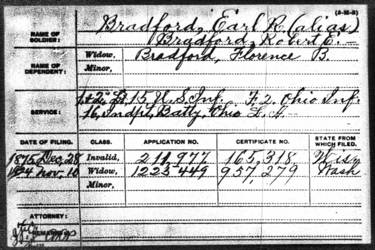 (3-38-3)
NAME OF SOLDIER: Bradford, Earl R. (alias)
Bradford, Robert E.
NAME OF DEPENDENT: Widow, Bradford, Florence B.
Minor,
SERVICE: 15 U.S. Inf. F. 2, Ohio Inf.
16, Indpt. Batty, Ohio L.A.
DATE OF FILING. CLASS. APPLICATION NO. CERTIFICATE NO. STATE FROM WHICH FILED.
1875 Dec. 28 Invalid, 211,977 165,318 Wis
1924 Nov. 10 Widow, 1225449 957,279 Wash
Minor,
ATTORNEY: